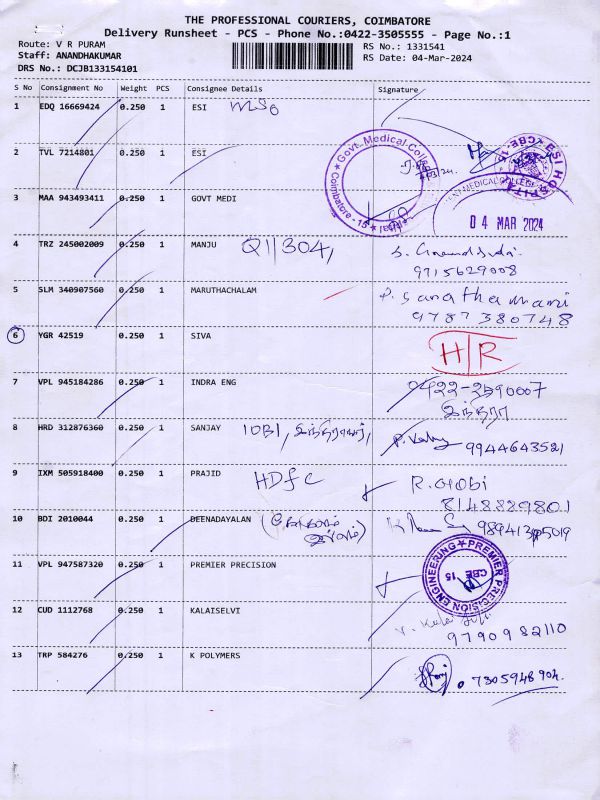 THE PROFESSIONAL COURIERS, COIMBATORE
Delivery Runsheet - PCS - Phone No.:0422-3505555 - Page No.:1
Route: V R PURAM
RS No.: 1331541
Staff: ANANDHAKUMAR
RS Date: 04-Mar-2024
DRS No.: DCJB133154101
S No Consignment No Weight PCS Consignee Details Signature
1 EDQ 16669424 0.250 1 ESI
2 TVL 7214801 0.250 1 ESI
Govt. Medical Coimbatore - 15
ESI HOSPITAL CBE-15
3 MAA 943493411 0.250 1 GOVT MEDI
MEDICAL COLLEGE
04 MAR 2024
4 TRZ 245002009 0.250 1 MANJU
9715629008
5 SLM 340907560 0.250 1 MARUTHACHALAM
9787380748
6 YGR 42519 0.250 1 SIVA H/R
7 VPL 945184286 0.250 1 INDRA ENG 0422-2590007
இந்திரா
8 HRD 312876360 0.250 1 SANJAY IOBI, 9944643521
9 IXM 505918400 0.250 1 PRAJID HDFC R. GOBI
8148829801
10 BDI 2010044 0.250 1 DEENADAYALAN
11 VPL 947587320 0.250 1 PREMIER PRECISION
PREMIER PRECISION ENGINEERING
CBE 15
12 CUD 1112768 0.250 1 KALAISELVI
9790982110
13 TRP 584276 0.250 1 K POLYMERS 7305948904.